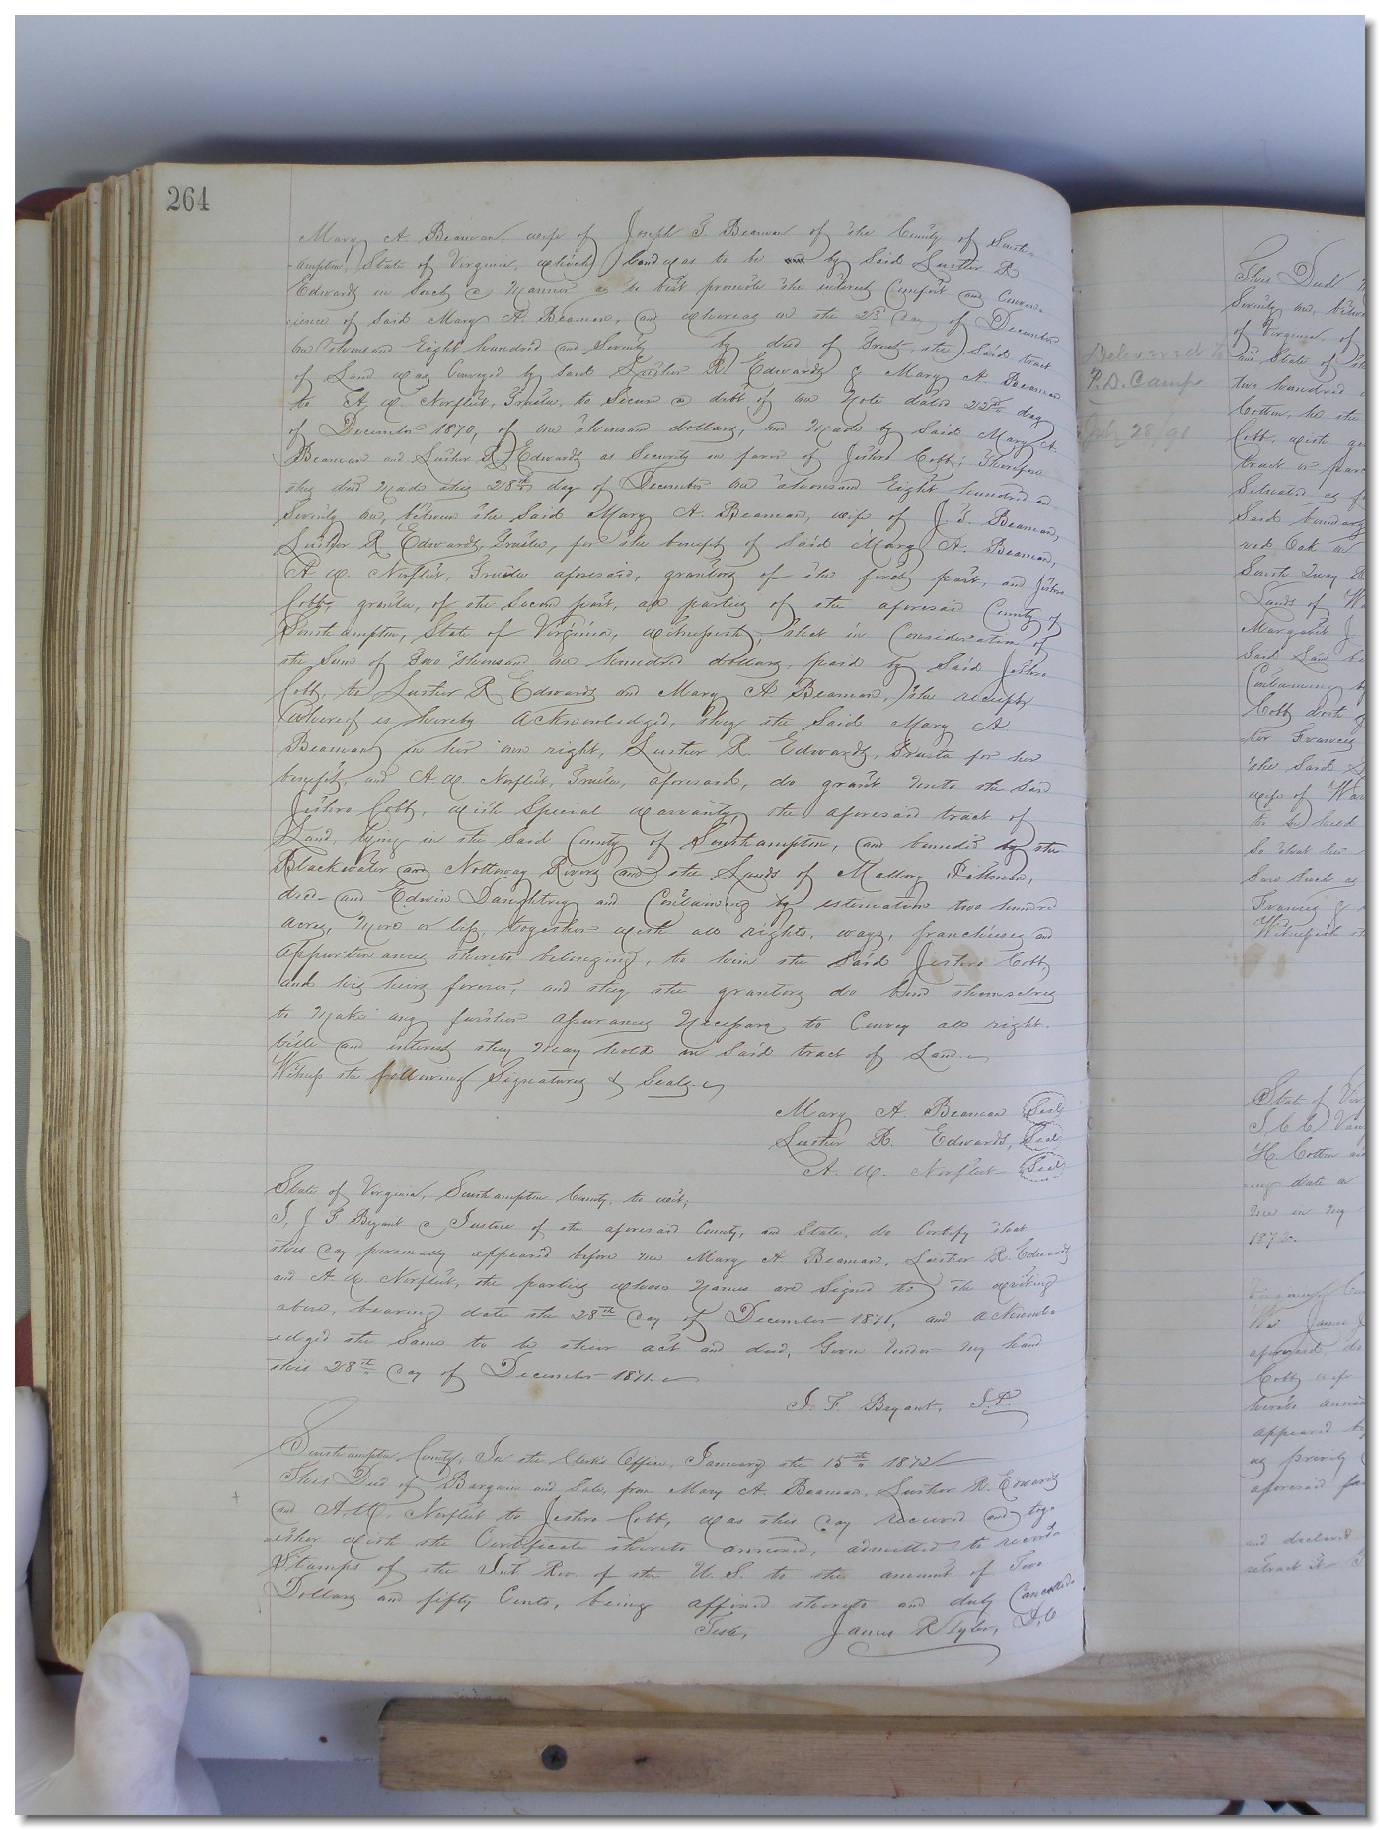 264
Mary A. Beaman wife of Joseph T. Beaman of the County of South-
-ampton, State of Virginia, which land was to be by Said Luther R
Edwards in Such a Manner as to best promote the interest Comfort and Conve-
nience of Said Mary A. Beaman, and whereas on the day of December
one thousand Eight hundred and Seventy by deed of Trust, the Said tract
of Land was Conveyed by Said Luther R. Edwards & Mary A. Beaman
to A. W. Norfleet, Trustee, to Secure a debt of one Note dated 22nd day
of December 1870, of one thousand dollars, and Made by Said Mary A.
Beaman and Luther R. Edwards as Security in favor of Jethro Cobb; Therefore
this deed Made this 28th day of December one thousand Eight hundred and
Seventy one, between the Said Mary A. Beaman, wife of J. T. Beaman,
Luther R Edwards, Trustee, for the benefit of Said Mary A. Beaman,
A. W. Norfleet, Trustee aforesaid, grantors of the first part, and Jethro
Cobb, grantee, of the Second part, all parties of the aforesaid County of
Southampton, State of Virginia, Witnesseth, that in Consideration of
the Sum of Two thousand one hundred dollars, paid by Said Jethro
Cobb, to Luther R Edwards and Mary A. Beaman, the receipt
whereof is hereby acknowledged, they the Said Mary A
Beaman in her own right, Luther R. Edwards, Trustee for her
benefit, and A. W. Norfleet, Trustee, aforesaid, do grant unto the Said
Jethro Cobb, with Special warranty, the aforesaid tract of
Land, lying in the Said County of Southampton, and bounded by the
Blackwater and Nottoway Rivers and the Lands of Mallory Pittman,
dec- and Edwin Daughtrey and Containing by estimation two hundred
acres, More or less, together with all rights, ways, franchises and
appurtenances thereto belonging, to him the Said Jethro Cobb,
and his heirs forever, and they the grantors do bind themselves
to Make any further assurances Necessary to Convey all right
title and interest they May hold in Said tract of Land.
Witness the following Signatures & Seals.
Mary A Beaman Seal
Luther R. Edwards, Seal
A. W. Norfleet Seal
State of Virginia, Southampton County, to wit;
I, J F Bryant a Justice of the aforesaid County, and State, do Certify that
this day personally appeared before me Mary A. Beaman, Luther R. Edwards
and A. W. Norfleet, the parties whose Names are Signed to the writing
above, bearing date the 28th day of December 1871, and acknowl
-edged the Same to be their act and deed, Given under my hand
this 28th day of December 1871.
J. F. Bryant, J.P.
Southampton County, In the Clerk's Office, January the 15th 1872
This Deed of Bargain and Sale, from Mary A. Beaman, Luther R. Edwards
and A. W. Norfleet to Jethro Cobb, was this day received and tog-
ether with the Certificate thereto annexed, admitted to record
Stamps of the Int Rev. of the U. S. to the amount of Two
Dollars and fifty Cents, being affixed thereto and duly Cancelled
Teste, James R Tyler, D.C
Delivered to
P. D. Camp
28/91
This Deed
Seventy one, betwe
of Virginia, of
and State of
two hundred
Cotton, he the
Cobb, with
tract or parc
Situated as
Said boundary
red Oak
South Quay
Lands of
Margaret J
Said Land
Containing
Cobb doth
-ter Frances
the Said
wife of
to be held
So that
Such
Frances
Witnesseth
State of Vir
H. Cotton
date
me in my
1872.
James J
aforesaid, do
Cobb wife
appeared
privily
aforesaid
and declared
retract it